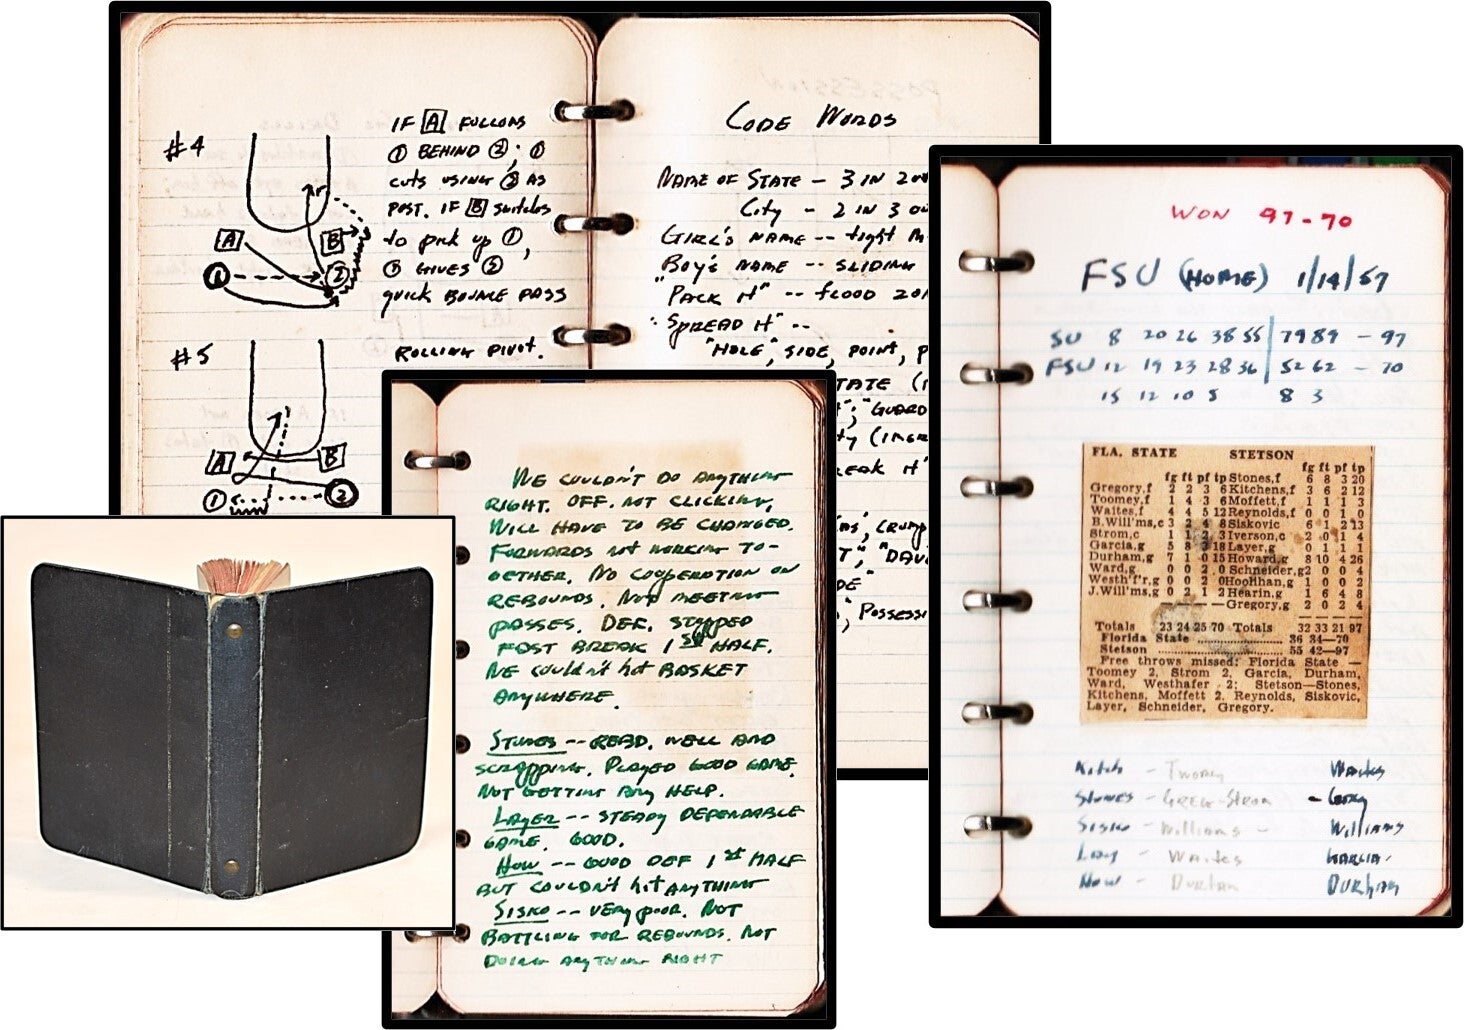 #4
IF A FOLLOWS
① BEHIND ②, ①
CUTS USING ② AS
POST. IF B SWITCHES
to pick up ①,
② GIVES ②
quick BOUNCE PASS
A
B
1
2
#5
ROLLING PIVOT.
A
B
1
2
CODE WORDS
NAME OF STATE - 3 IN 2 OU
City - 2 IN 3 OU
GIRL'S NAME -- tight M
BOY'S NAME -- SLIDING
"PACK IT" -- FLOOD ZON
"SPREAD IT" --
"HOLE", SIDE, POINT, P
TATE (I
"GUARD
REAK IT"
POSSESSI
WE COULDN'T DO ANYTHING
RIGHT. OFF. NOT CLICKING,
WILL HAVE TO BE CHANGED.
FORWARDS NOT WORKING TO-
GETHER. NO COOPERATION ON
REBOUNDS. NOT MEETING
PASSES. DEF. STOPPED
FAST BREAK 1st HALF.
WE COULDN'T hit BASKET
ANYWHERE.
STONES -- REBD. WELL AND
SCRAPPING. PLAYED GOOD GAME.
NOT GETTING ANY HELP.
LAYER -- STEADY DEPENDABLE
GAME. GOOD.
HOW -- GOOD DEF 1st HALF
BUT COULDN'T hit ANYTHING
SISKO -- VERY POOR. NOT
BATTLING FOR REBOUNDS. NOT
DOING ANYTHING RIGHT
WON 97-70
FSU (HOME) 1/14/57
SU 8 20 26 38 55 79 89 - 97
FSU 12 19 23 28 36 52 62 - 70
15 12 10 5 8 3
FLA. STATE STETSON
fg ft pf tp
fg ft pf tp Stones,f 6 8 3 20
Gregory,f 2 2 3 6 Kitchens,f 3 6 2 12
Toomey,f 1 4 3 6 Moffett,f 1 1 1 3
Waites,f 4 4 5 12 Reynolds,f 0 0 1 0
B.Will'ms,c 3 2 4 8 Siskovic 6 1 2 13
Strom,c 1 1 2 3 Iverson,c 2 0 1 4
Garcia,g 5 8 3 18 Layer,g 0 1 1 1
Durham,g 7 1 0 15 Howard,g 8 10 4 26
Ward,g 0 0 2 0 Schneider,g 2 0 0 4
Westh'f'r,g 0 0 2 0 Hoolihan,g 1 0 0 2
J.Will'ms,g 0 2 1 2 Hearin,g 1 6 4 8
Gregory,g 2 0 2 4
Totals 23 24 25 70 Totals 32 33 21 97
Florida State 36 34—70
Stetson 55 42—97
Free throws missed: Florida State —
Toomey 2, Strom 2, Garcia, Durham,
Ward, Westhafer 2; Stetson—Stones,
Kitchens, Moffett 2, Reynolds, Siskovic,
Layer, Schneider, Gregory.
Kitch - Twomey Waites
STONES - GREG-Strom - Greg
Sisko - Williams - Williams
Lay - Waites GARCIA
How - Durham DURHAM